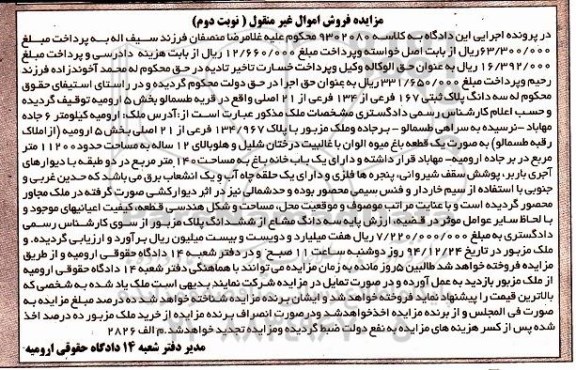 مزایده فروش اموال غیر منقول ( نوبت دوم)
در پرونده اجرایی این دادگاه به کلاسه ۹۳۰۲۰۸۰ محکوم علیه غلامرضا منصفان فرزند سیف اله به پرداخت مبلغ
۶۳/۳۰۰/۰۰۰ریال از بابت اصل خواسته وپرداخت مبلغ ۱۲/۶۶۰/۰۰۰ ریال از بابت هزینه دادرسی و پرداخت مبلغ
۱۶/۳۹۲/۰۰۰ ریال به عنوان حق الوکاله وکیل وپرداخت خسارت تاخیر تادیه در حق محکوم له محمد آخوندزاده فرزند
رحیم وپرداخت مبلغ ۳۳۱/۶۵۰/۰۰۰ریال به عنوان حق اجرا در حق دولت محکوم گردیده و در راستای استیفای حقوق
محکوم له سه دانگ پلاک ثبتی ۱۶۷ فرعی از ۱۳۴ فرعی از ۲۱ اصلی واقع در قریه طسمالو بخش ۵ ارومیه توقیف گردیده
و حسب اعلام کارشناس رسمی دادگستری مشخصات ملک مذکور عبارت است از :آدرس ملک: ارومیه کیلومتر ۶ جاده
مهاباد -نرسیده به سراهی طسمالو - برجاده وملک مزبور با پلاک ۱۳۴/۹۶۷ فرعی از ۲۱ اصلی بخش ۵ ارومیه (از املاک
رقبه طسمالو) به صورت یک قطعه باغ میوه الوان با غالبیت درختان شلیل و هلوبالای ۱۲ ساله به مساحت حدود ۱۱۲۰۰ متر
مربع در بر جاده ارومیه- مهاباد قرار داشته و دارای یک باب خانه باغ به مساحت ۱۴۰ متر مربع در دو طبقه با دیوارهای
آجری باربر، پوشش سقف شیروانی، پنجره ها فلزی و دارای یک حلقه چاه آب و یک انشعاب برق می باشد که حدین غربی و
جنوبی با استفاده از سیم خاردار و فنس سیمی محصور بوده و حدشمالی نیز در اثر دیوارکشی صورت گرفته در ملک مجاور
محصور گردیده است و با عنایت مراتب موصوف و موقعیت محل، مساحت و شکل هندسی قطعه، کیفیت اعیانیهای موجود و
با لحاظ سایر عوامل موثر در قضیه، ارزش پایه سه دانگ مشاع از ششدانگ پلاک مزبور از سوی کارشناس رسمی
دادگستری به مبلغ ۷/۲۲۰/۰۰۰/۰۰۰ ریال هفت میلیارد و دویست و بیست میلیون ریال برآورد و ارزیابی گردیده. و
ملک مزبور در تاریخ ۹۴/۱۲/۲۴ روز دوشنبه ساعت ۱۱ صبح و در دفتر شعبه ۱۴ دادگاه حقوقی ارومیه و از طریق
مزایده فروخته خواهد شد طالبین ۵ روز مانده به زمان مزایده می توانند با هماهنگی دفتر شعبه ۱۴ دادگاه حقوقی ارومیه
از ملک مزبور بازدید به عمل آورده و در صورت تمایل در مزایده شرکت نمایند بدیهی است ملک یاد شده به شخصی که
بالاترین قیمت را پیشنهاد نماید فروخته خواهد شد و ایشان برنده مزایده شناخته خواهد شد ده درصد مبلغ مزایده به
صورت فی المجلس و از برنده مزایده اخذ خواهدشد ودر صورت انصراف برنده مزایده از خرید ملک مزبور ده درصد اخذ
شده پس از کسر هزینه های مزایده به نفع دولت ضبط گردیده ومزایده تجدید خواهدشد.م الف ۲۸۲۶
مدیر دفتر شعبه ۱۴ دادگاه حقوقی ارومیه